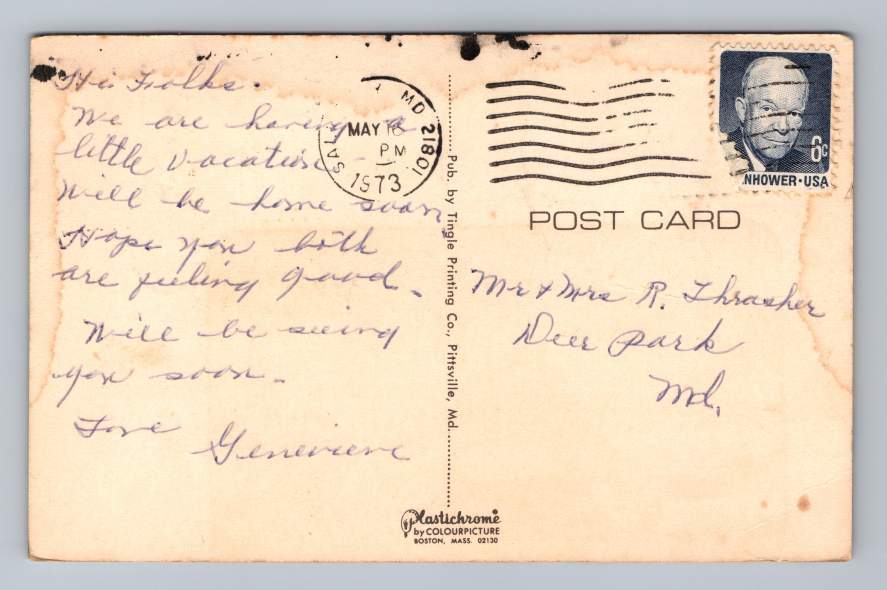 Hi Folks.
We are having a
little vacation -
Will be home soon,
Hope you both
are feeling good.
Will be seeing
you soon.
Love
Genevieve
SAL MD 21801
MAY 16
PM
1973
Pub. by Tingle Printing Co., Pittsville, Md.
Plastichrome
by COLOURPICTURE
BOSTON, MASS. 02130
6c
NHOWER·USA
POST CARD
Mr & Mrs R. Thrasher
Deer Park
Md.